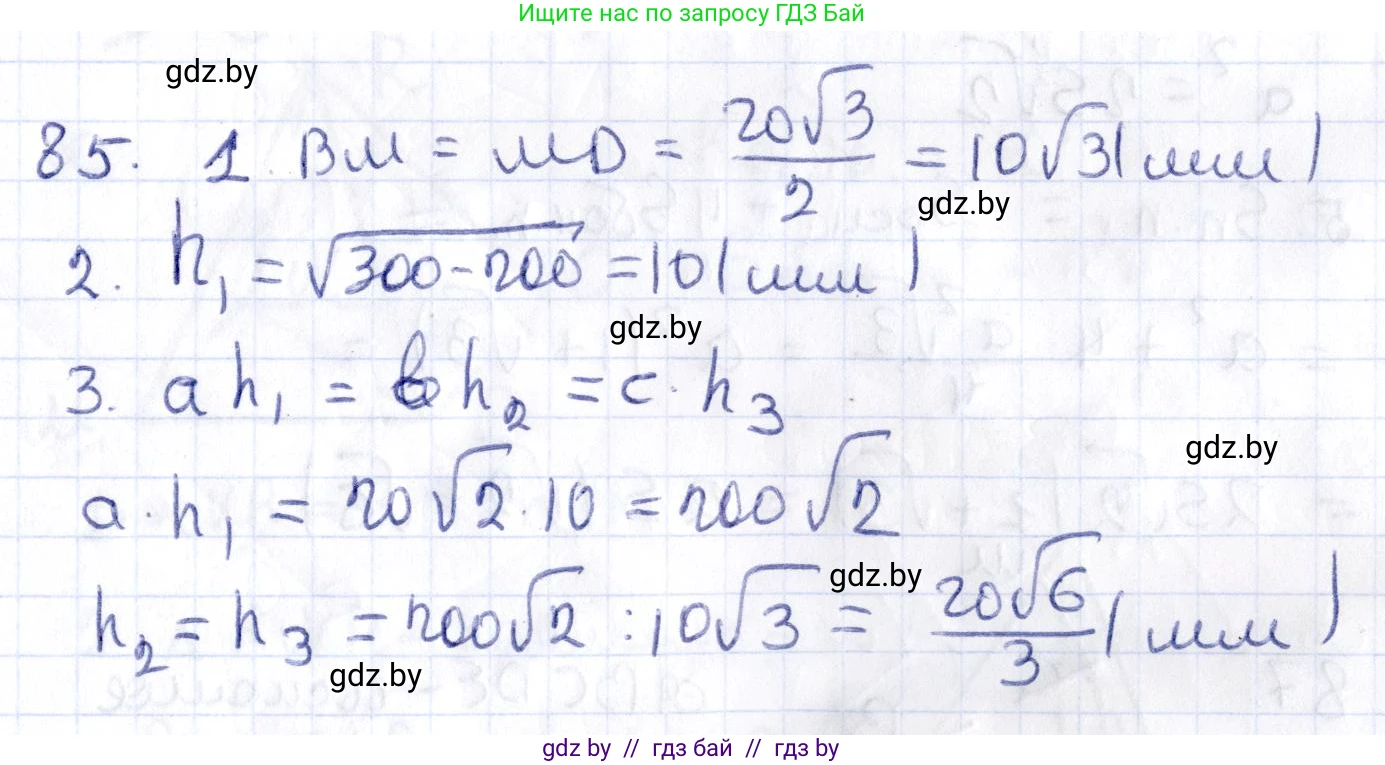 Ищите нас по запросу ГДЗ Бай
gdz.by
85. 1. BM = MD = 20√3/2 = 10√3 (мм)
gdz.by
2. h₁ = √(300-200) = 10 (мм)
gdz.by
3. a h₁ = b h₂ = c · h₃
gdz.by
a · h₁ = 20√2 · 10 = 200√2
gdz.by
h₂ = h₃ = 200√2 : 10√3 = 20√6/3 (мм)
gdz.by
gdz by // гдз бай // гдз by